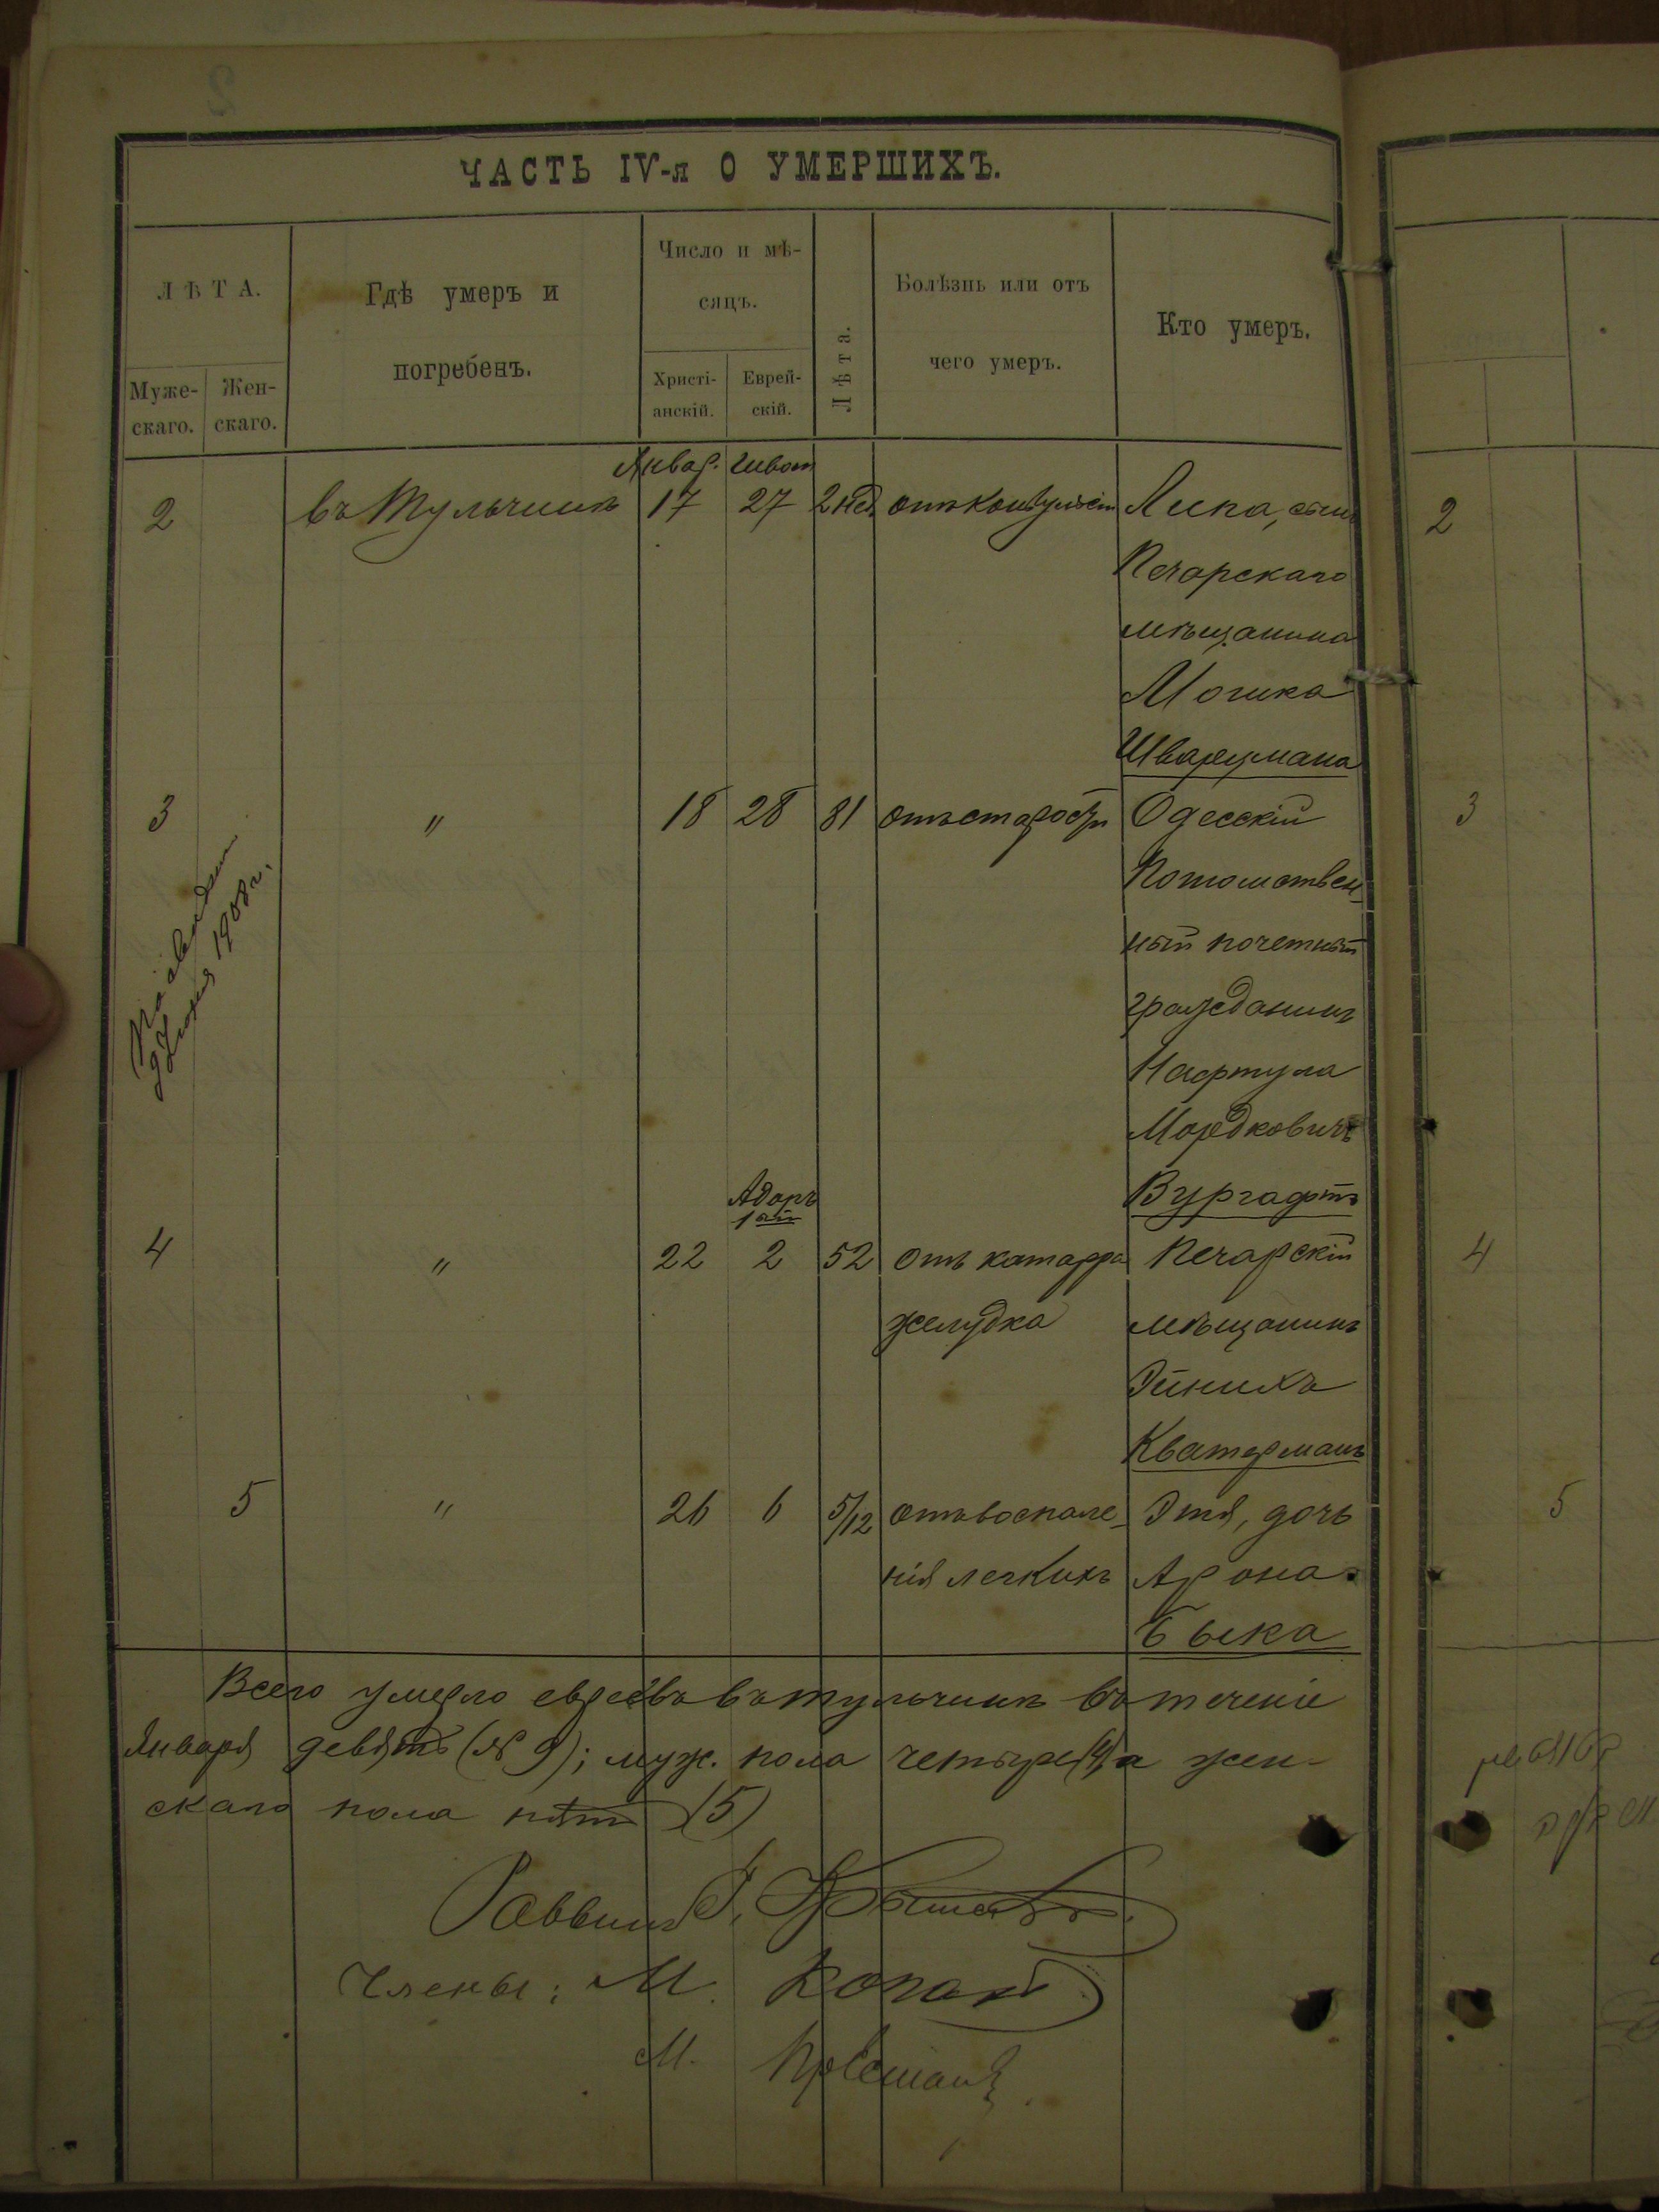 ЧАСТЬ IV-я О УМЕРШИХЪ.
ЛѢТА.
Муже-
скаго.
Жен-
скаго.
Гдѣ умеръ и
погребенъ.
Число и мѣ-
сяцъ.
Христі-
анскій.
Еврей-
скій.
Лѣта.
Болѣзнь или отъ
чего умеръ.
Кто умеръ.
Январ. Шват
2 въ Тульчинѣ 17 27 2 нед. отъ конвульсій Липа, сынъ
Печарскаго
мѣщанина
Мошка
Шварцмана
3 " 18 28 81 отъ старости Одесскій
Потомствен-
ный почетный
гражданинъ
Нафтула
Мордковичъ
Вургафтъ
1908 г.
Адаръ
1ый
4 " 22 2 52 отъ катарра Печарскій
желудка мѣщанинъ
Эйнихъ
Кватерманъ
5 " 26 6 5/12 отъ воспале- Этя, дочь
нія легкихъ Арона
Быка
Всего умерло евреевъ въ Тульчинѣ въ теченіе
Января девять (№ 9); муж. пола четыре (4) а жен-
скаго пола пять (5)
Раввинъ
Члены: М. Копай
М.
2
3
4
5